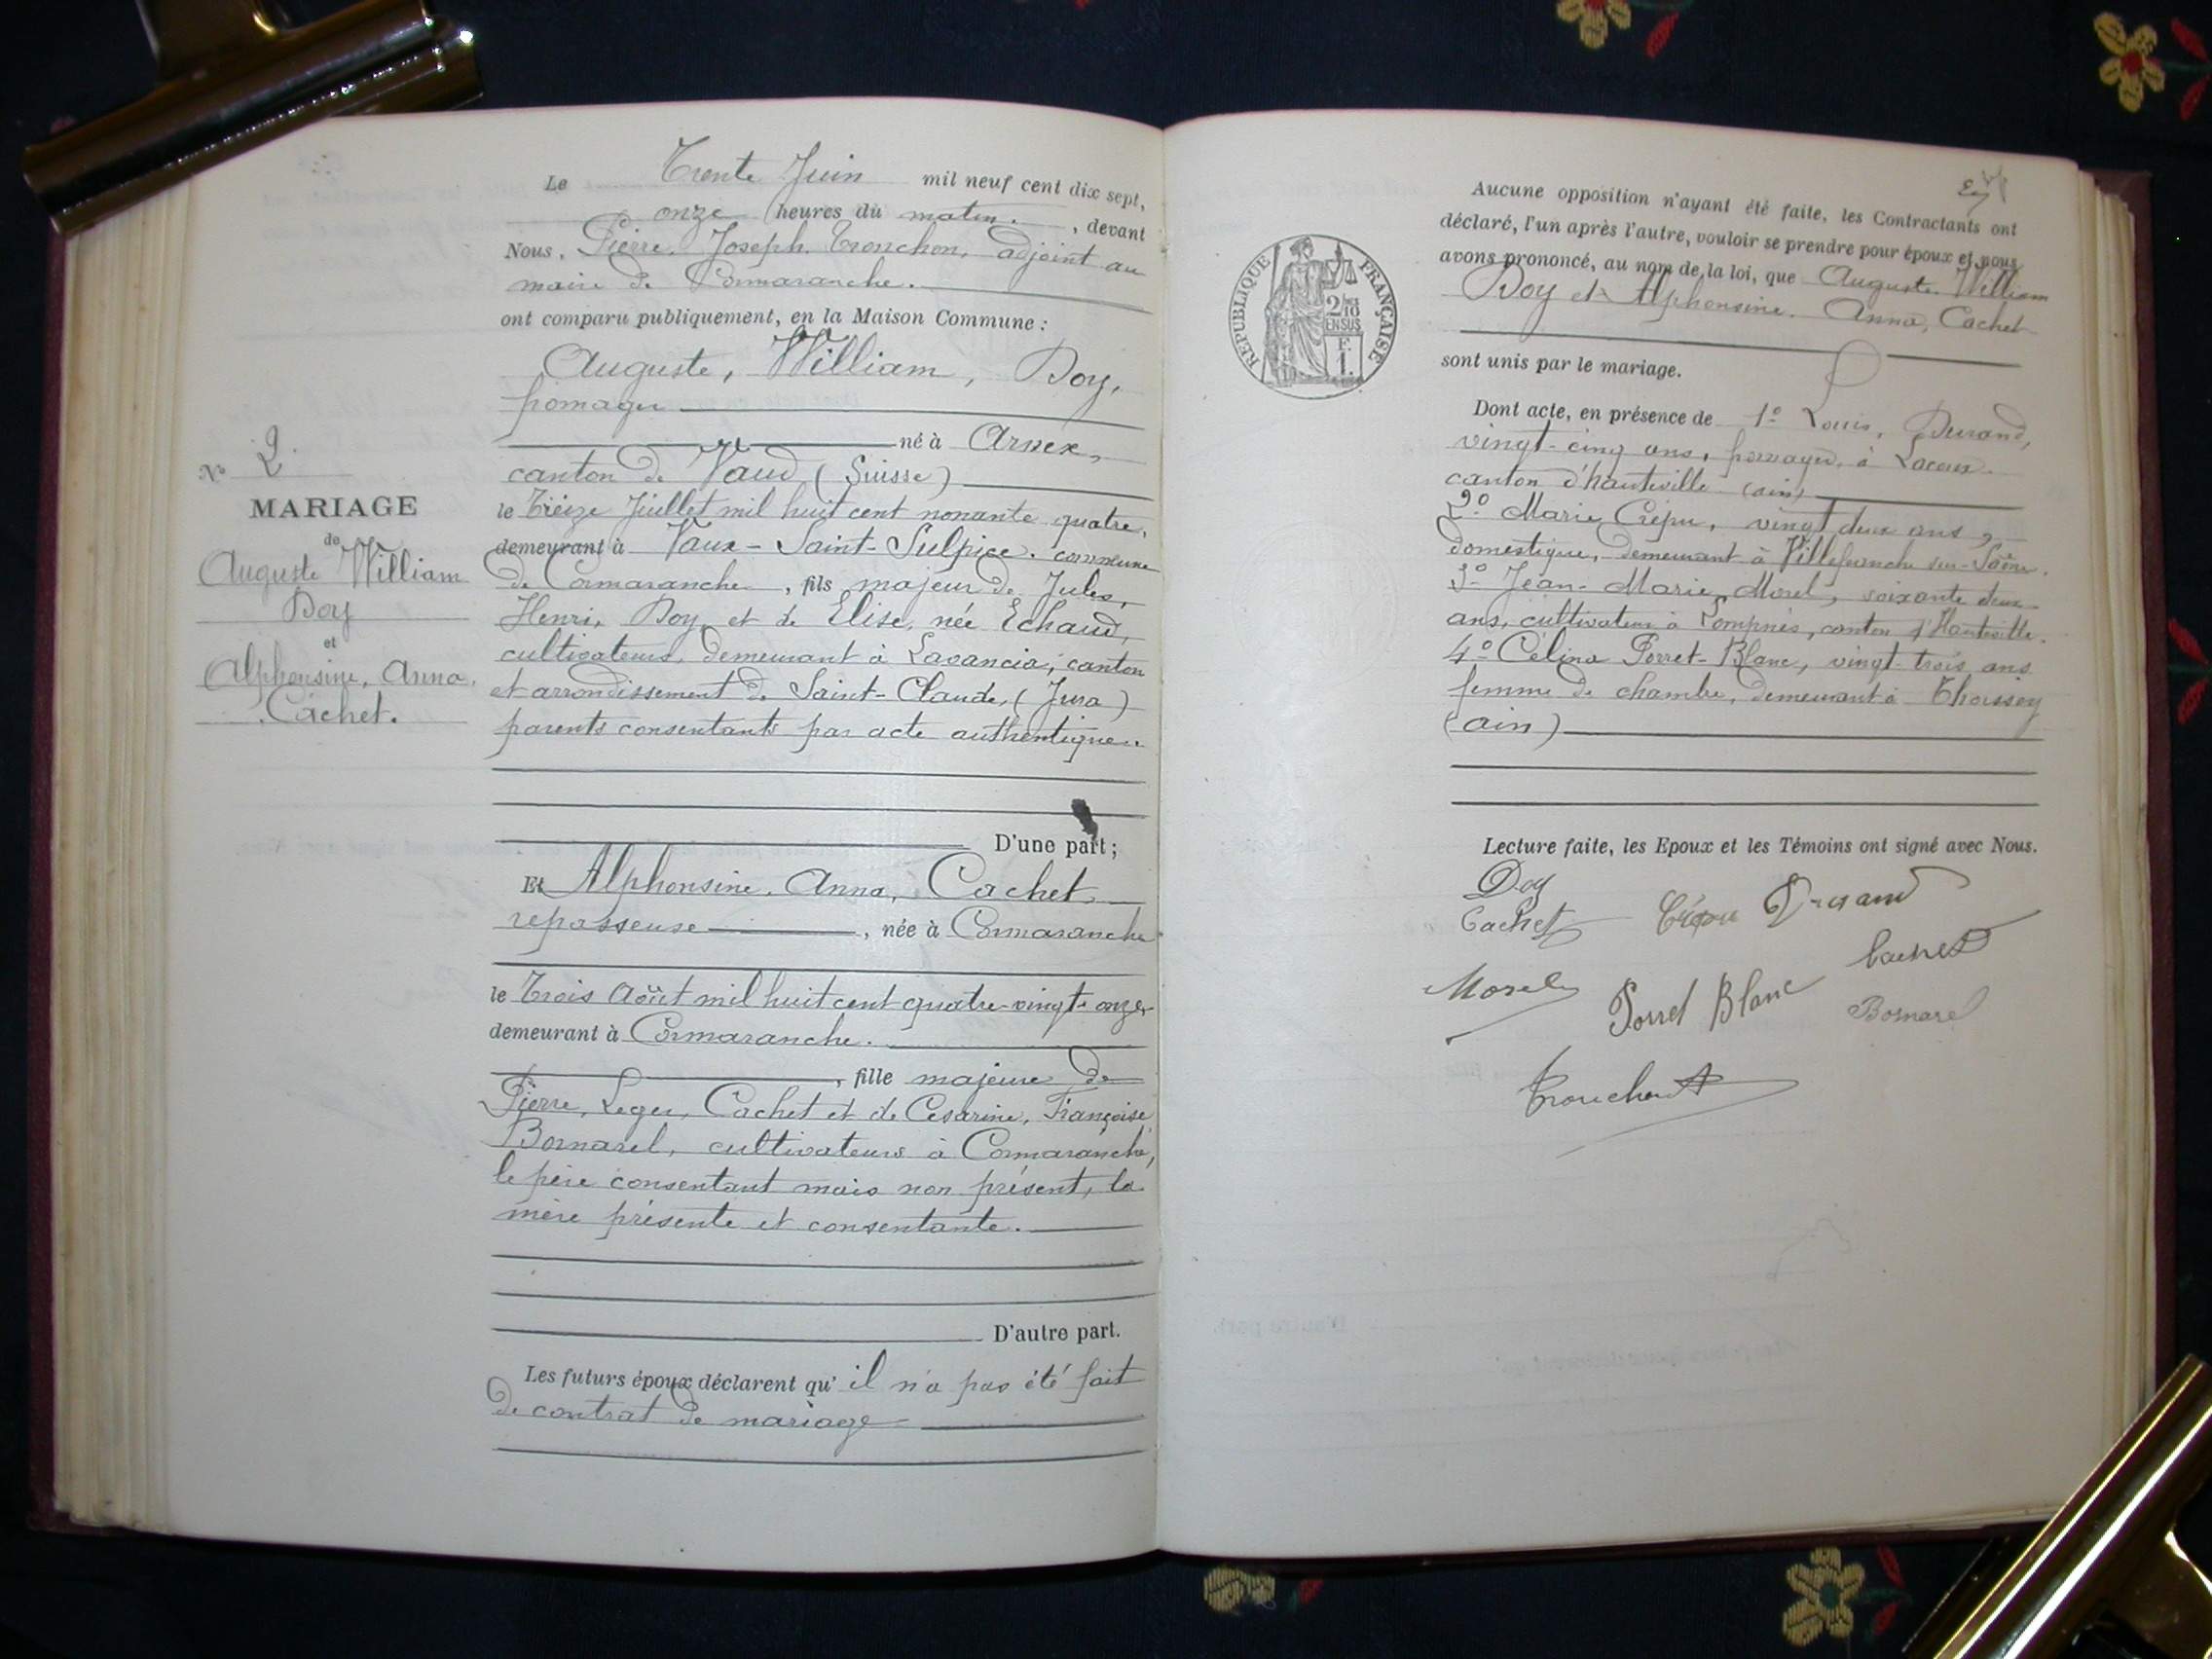 Le Trente Juin mil neuf cent dix sept,
onze heures du matin. , devant
Nous, Pierre, Joseph, Tronchon, adjoint au
maire de Cormaranche.
ont comparu publiquement, en la Maison Commune :
Auguste, William, Doy,
fromager
né à Arnex,
canton de Vaud (Suisse)
le Treize Juillet mil huit cent nonante quatre,
demeurant à Vaux-Saint-Sulpice, commune
de Cormaranche, fils majeur de Jules,
Henri, Doy, et de Elise, née Echaud,
cultivateurs, demeurant à Lavancia, canton
et arrondissement de Saint-Claude, (Jura)
parents consentants par acte authentique.
D'une part ;
Et Alphonsine, Anna, Cachet
repasseuse , née à Cormaranche
le Trois Août mil huit cent quatre-vingt-onze
demeurant à Cormaranche.
, fille majeure de
Pierre, Leger, Cachet et de Césarine, Françoise,
Bornarel, cultivateurs à Cormaranche,
le père consentant mais non présent, la
mère présente et consentante.
D'autre part.
Les futurs époux déclarent qu' il n'a pas été fait
de contrat de mariage
No 2.
MARIAGE
de
Auguste William
Doy
et
Alphonsine, Anna,
Cachet.
Aucune opposition n'ayant été faite, les Contractants ont
déclaré, l'un après l'autre, vouloir se prendre pour époux et nous
avons prononcé, au nom de la loi, que Auguste William
Doy et Alphonsine, Anna, Cachet
sont unis par le mariage.
Dont acte, en présence de 1º Louis, Durand,
vingt-cinq ans, fromager, à Lacoux
canton d'hauteville (ain)
2º Marie Crépu, vingt deux ans,
domestique, demeurant à Villefranche sur-Saône.
3º Jean-Marie Morel, soixante deux
ans, cultivateur à Lompnès, canton d'Hauteville.
4º Célina Porret-Blanc, vingt-trois ans
femme de chambre, demeurant à Thoissey
(ain)
Lecture faite, les Epoux et les Témoins ont signé avec Nous.
Doy
Cachet Crépu Durand
Morel Porret Blanc Cachet
Bornarel
Tronchon
RÉPUBLIQUE FRANÇAISE
2/10
EN SUS
F.
1.